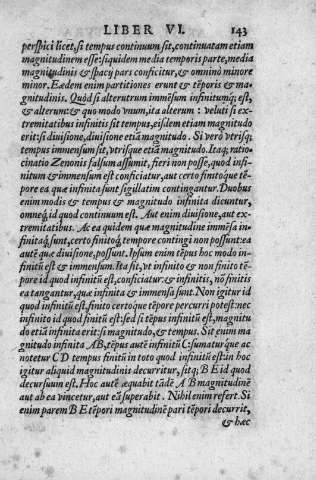 LIBER VI. 143
perspici licet, si tempus continuum sit, continuatam etiam
magnitudinem esse: siquidem media temporis parte, media
magnitudinis & spacij pars conficitur, & omninò minore
minor. Eædem enim partitiones erunt & tẽporis & ma-
gnitudinis. Quòd si alterutrum immẽsum infinitumq́; est,
& alterum: & quo modo vnum, ita alterum: veluti si ex-
tremitatibus infinitis sit tempus, eisdem etiam magnitudo
erit: si diuisione, diuisione etiã magnitudo. Si verò vtrisq;
tempus immensum sit, vtrisque etiã magnitudo. Itaq; ratio-
cinatio Zenonis falsum assumit, fieri non posse, quod infi-
nitum & immensum est conficiatur, aut certo finitoq́ue tẽ-
pore ea quæ infinita sunt sigillatim contingantur. Duobus
enim modis & tempus & magnitudo infinita dicuntur,
omneq́; id quod continuum est. Aut enim diuisione, aut ex-
tremitatibus. Ac ea quidem quæ magnitudine immẽsa in-
finitaq́; sunt, certo finitoq́; tempore contingi non possunt: ea
autẽ quæ diuisione, possunt. Ipsum enim tẽpus hoc modo in-
finitũ est & immensum. Ita fit, vt infinito & non finito tẽ-
pore id quod infinitũ est, conficiatur: & infinitis, nõ finitis
ea tangantur, quæ infinita & immensa sunt. Non igitur id
quod infinitũ est, finito certoque tẽpore percurri potest: nec
infinito id quod finitũ est: sed si tẽpus infinitũ est, magnitu
do etiã infinita erit: si magnitudo, & tempus. Sit enim ma
gnitudo infinita AB, tẽpus autẽ infinitũ C: sumatur q́ue ac
notetur CD tempus finitũ in toto quod infinitũ est: in hoc
igitur aliquid magnitudinis decurritur, sitq́; BE id quod
decursuum est. Hoc autẽ æquabit tãdẽ AB magnitudinẽ
aut ab ea vincetur, aut eã superabit. Nihil enim refert. Si
enim parem BE tẽpori magnitudinẽ pari tẽpori decurrit,
& hæc